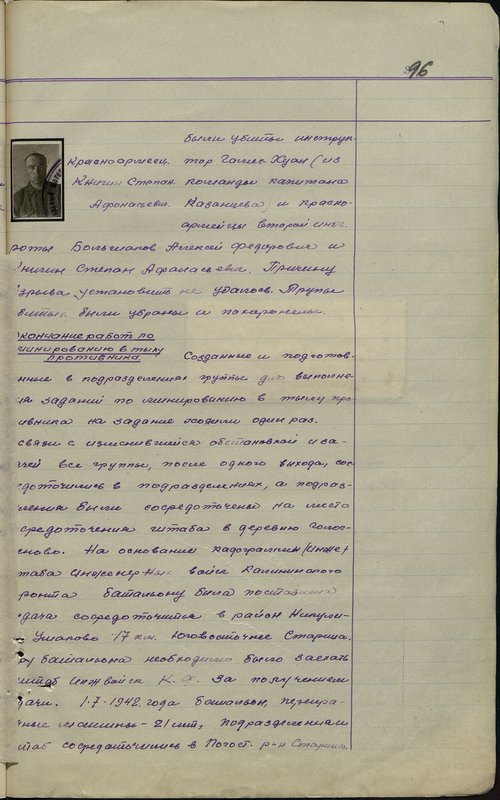 96
были убиты инструк-
Красноармеец. тор Гомес Хуан (из
Книгин Степан. команды капитана
Афанасьевич. Казанцева) и красно-
армейцы второй инж.
роты Большаков Алексей Федорович и
нигин Степан Афанасьевич. Причину
зрыва установить не удалось. Трупы
были убраны и похоронены.
кончание работ по
минированию в тылу
противника
Созданные и подготов-
нные в подразделениях группы для выполне-
ия заданий по минированию в тылу про
ивника на задание ходили один раз.
связи с изменившейся обстановкой и за-
чей все группы, после одного выхода, сос
едоточились в подразделениях, а подраз-
ления были сосредоточены на место
средоточения штаба в деревню
ново. На основание
таба инженерных войск Калининского
ронта батальону была поставлена
дача сосредоточиться в район
17 км. Юговосточнее Старица.
бу батальона необходимо было заехать
штаб инж войск К.Ф. за получением
дачи. 1.7.1942 года батальон,
ные машины - 21 шт, подразделения и
таб сосредоточились в Погост. р-н Старица,